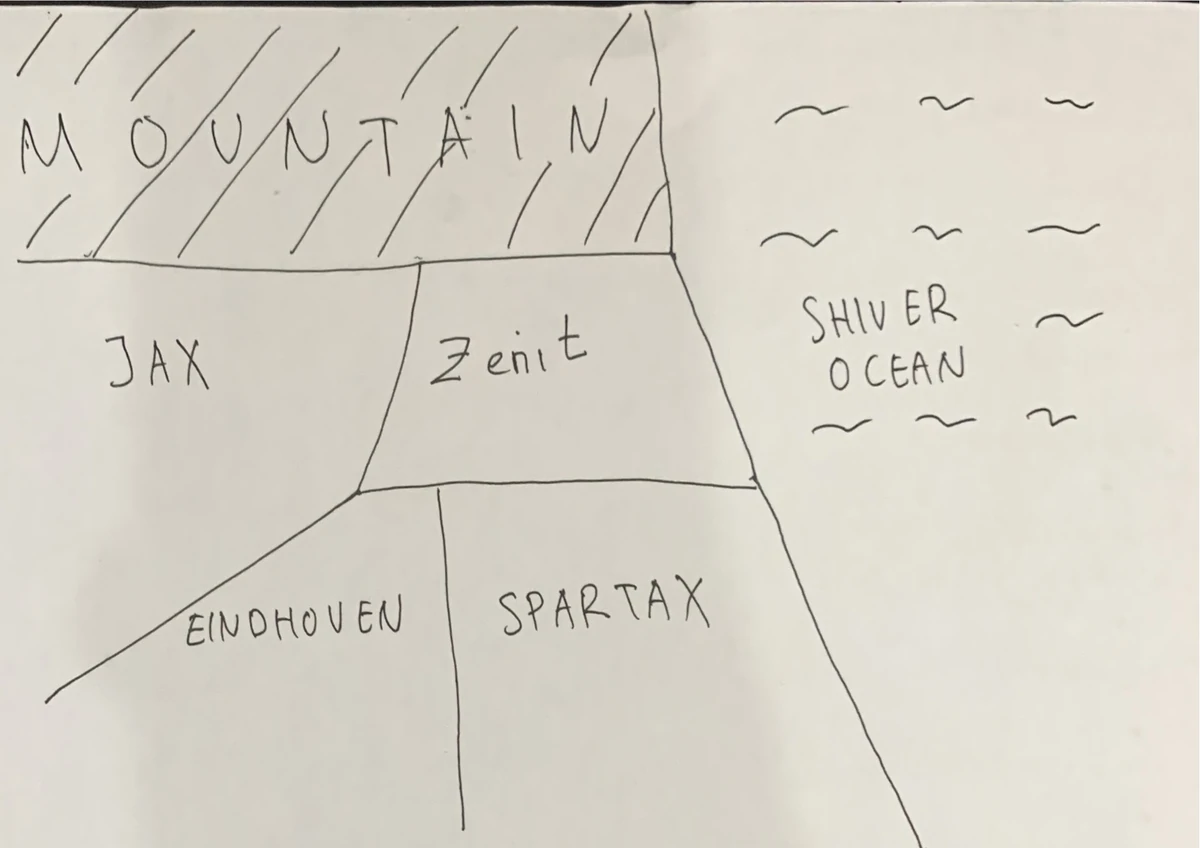 MOUNTAIN
JAX
Zenit
SHIVER
OCEAN
EINDHOVEN
SPARTAX